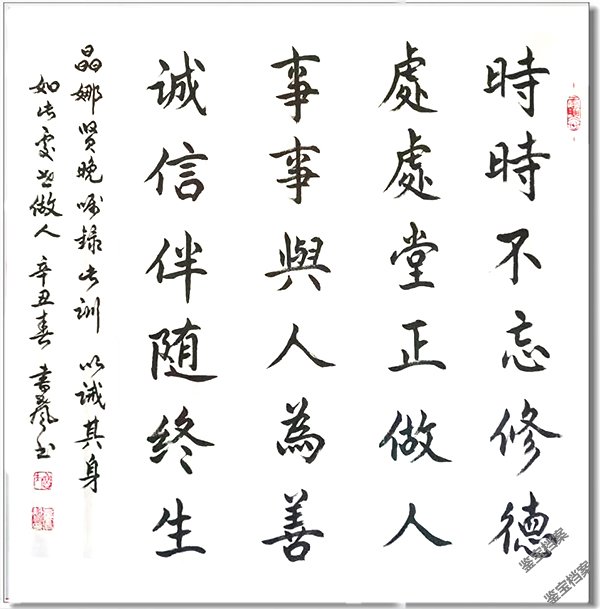 時時不忘修德
處處堂正做人
事事與人為善
诚信伴随终生
晶娜贤晚嘱録此训 以诫其身
如此处世做人 辛丑春 书
鉴宝档案
鉴宝档案